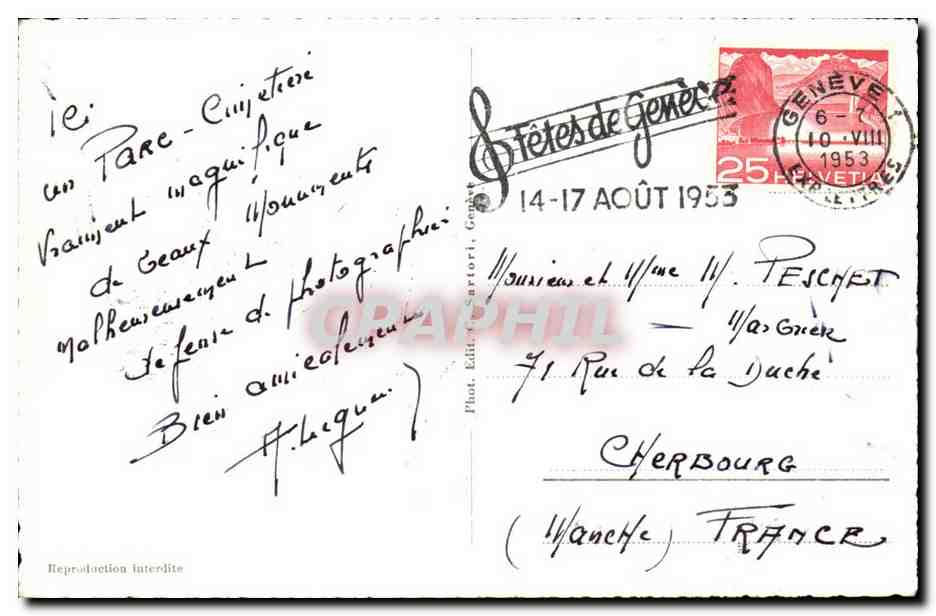 Ici
un PARC - Cimetière
vraiment magnifique
de beaux Monuments
Malheureusement
défense de photographier
Bien amicalement
Phot. Edit. Sartori, Genève
Fêtes de Genève
14-17 AOÛT 1953
GENÈVE 1
6 - 7
10.VIII
1953
EXP. LETTRES
25 HELVETIA
Monsieur et Mme M. PESCHET
71 Rue de la Duché
CHERBOURG
(Manche) FRANCE
CPAPHIL
Reproduction interdite